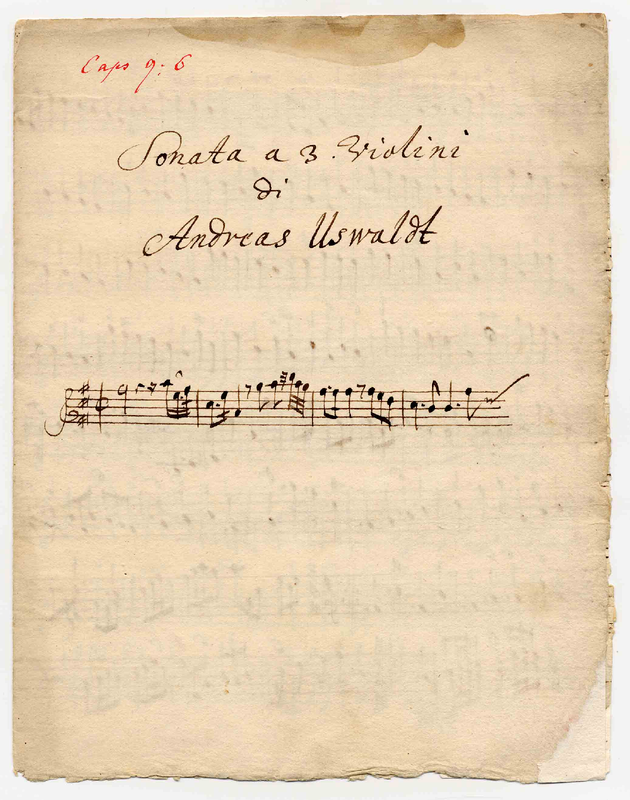 Caps 9: 6
Sonata a 3. Violini
di
Andreas Uswaldt